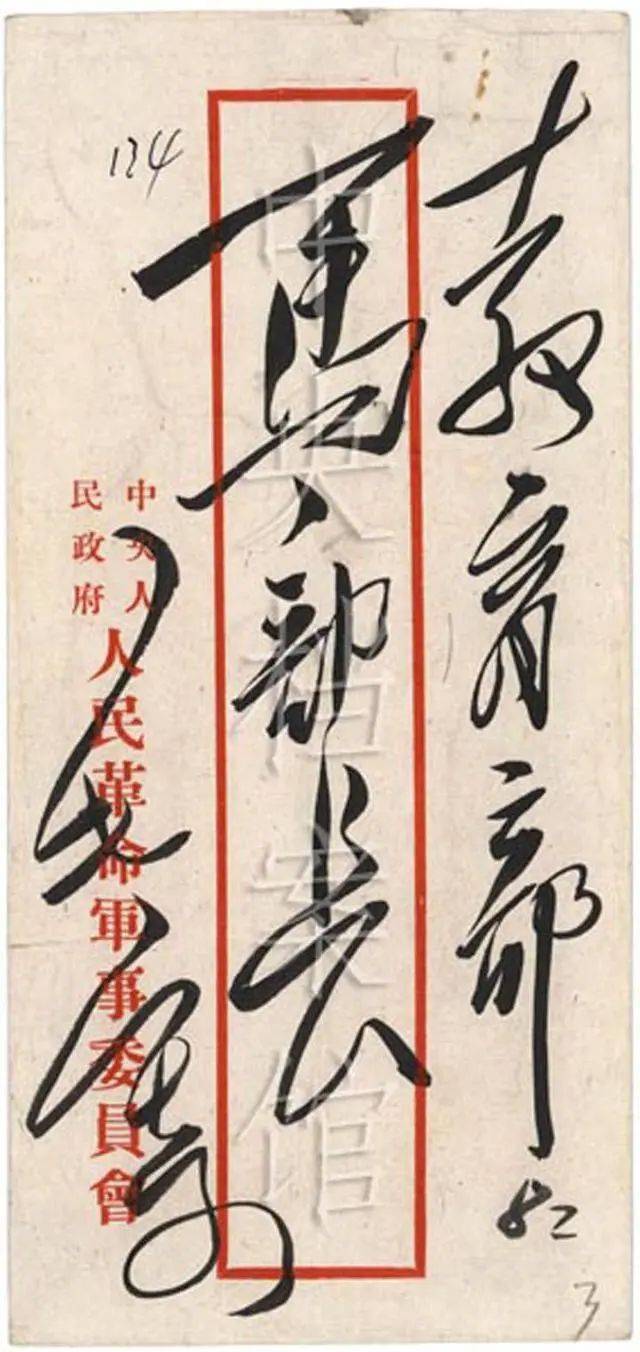 教育部
馬部長
中央人
民政府
人民革命軍事委員會
毛
中央档案馆